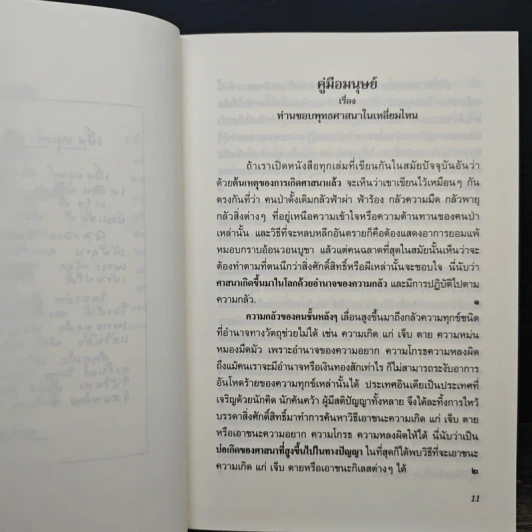 คู่มือมนุษย์
เรื่อง
ท่านชอบพุทธศาสนาในเหลี่ยมไหน
ถ้าเราเปิดหนังสือทุกเล่มที่เขียนกันในสมัยปัจจุบันอันว่า
ด้วยต้นเหตุของการเกิดศาสนาแล้ว จะเห็นว่าเขาเขียนไว้เหมือนๆ กัน
ตรงกันที่ว่า คนป่าดั้งเดิมกลัวฟ้าผ่า ฟ้าร้อง กลัวความมืด กลัวพายุ
กลัวสิ่งต่างๆ ที่อยู่เหนือความเข้าใจหรือความต้านทานของคนป่า
เหล่านั้น และวิธีที่จะหลบหลีกอันตรายก็คือต้องแสดงอาการยอมแพ้
หมอบกราบอ้อนวอนบูชา แล้วแต่คนฉลาดที่สุดในสมัยนั้นเห็นว่าจะ
ต้องทำตามที่ตนนึกว่าสิ่งศักดิ์สิทธิ์หรือผีเหล่านั้นจะชอบใจ นี่นับว่า
ศาสนาเกิดขึ้นมาในโลกด้วยอำนาจของความกลัว และมีการปฏิบัติไปตาม
ความกลัว. ๑
ความกลัวของคนชั้นหลังๆ เลื่อนสูงขึ้นมาถึงกลัวความทุกข์ชนิด
ที่อำนาจทางวัตถุช่วยไม่ได้ เช่น ความเกิด แก่ เจ็บ ตาย ความหม่น
หมองมืดมัว เพราะอำนาจของความอยาก ความโกรธความหลงผิด
ถึงแม้คนเราจะมีอำนาจหรือเงินทองสักเท่าไร ก็ไม่สามารถระงับอาการ
อันโหดร้ายของความทุกข์เหล่านั้นได้ ประเทศอินเดียเป็นประเทศที่
เจริญด้วยนักคิด นักค้นคว้า ผู้มีสติปัญญาทั้งหลาย จึงได้ละทิ้งการไหว้
บรรดาสิ่งศักดิ์สิทธิ์มาทำการค้นหาวิธีเอาชนะความเกิด แก่ เจ็บ ตาย
หรือเอาชนะความอยาก ความโกรธ ความหลงผิดให้ได้ นี่นับว่าเป็น
บ่อเกิดของศาสนาที่สูงขึ้นไปในทางปัญญา ในที่สุดก็ได้พบวิธีที่จะเอาชนะ
ความเกิด แก่ เจ็บ ตายหรือเอาชนะกิเลสต่างๆ ได้ ๒
11